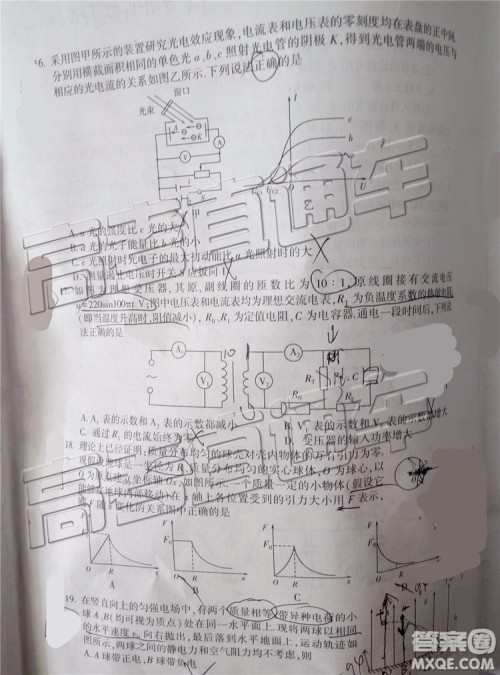 16. 采用图甲所示的装置研究光电效应现象,电流表和电压表的零刻度均在表盘的正中间,
分别用横截面积相同的单色光 a、b、c 照射光电管的阴极 K,得到光电管两端的电压与
相应的光电流的关系如图乙所示.下列说法正确的是
窗口
光束
A
K
V
A
S
甲
I
c
b
a
O
U
乙
A. a 光的强度比 c 光的大
B. a 光的光子能量比 b 光的小
C. c 光照射时光电子的最大初动能比 a 光照射时的大
D. 测量遏止电压时开关 S 应扳向 1
变压器,其原、副线圈的匝数比为 10 : 1,原线圈接有交流电压
u=220sin100πt V,图中电压表和电流表均为理想交流电表,R_T 为负温度系数的热敏电阻
(即当温度升高时,阻值减小),R_0、R_1 为定值电阻,C 为电容器.通电一段时间后,下列说
法正确的是
A_1
V_1
V_2
A_2
R_T
R_0
R_1
C
10
1
A. A_1 表的示数和 A_2 表的示数都减小
B. V_1 表的示数和 V_2 表的示数都增大
C. 通过 R_1 的电流始终为零
D. 变压器的输入功率增大
18. 理论上已经证明:质量分布均匀的球壳对壳内物体的万有引力为零.
现假设地球是一半径为 R、质量分布均匀的实心球体,O 为球心,以
O 为原点建立坐标轴 Ox,如图所示.一个质量一定的小物体(假设它
能够在地球内部移动)在 x 轴上各位置受到的引力大小用 F 表示,
则 F 随 x 变化的关系图中正确的是
F
F_0
O
R
x
A
F
F_0
O
R
x
B
F
F_0
O
R
x
C
F
F_0
O
R
x
19. 在竖直向上的匀强电场中,有两个质量相等、带异种电荷的小
球 A、B(均可视为质点)处在同一水平面上.现将两球以相同
的水平速度 v_0 向右抛出,最后落到水平地面上,运动轨迹如
图所示,两球之间的静电力和空气阻力均不考虑,则
A. A 球带正电,B 球带负电
高考直通车
高考直通车
答案圈
MXQE.COM